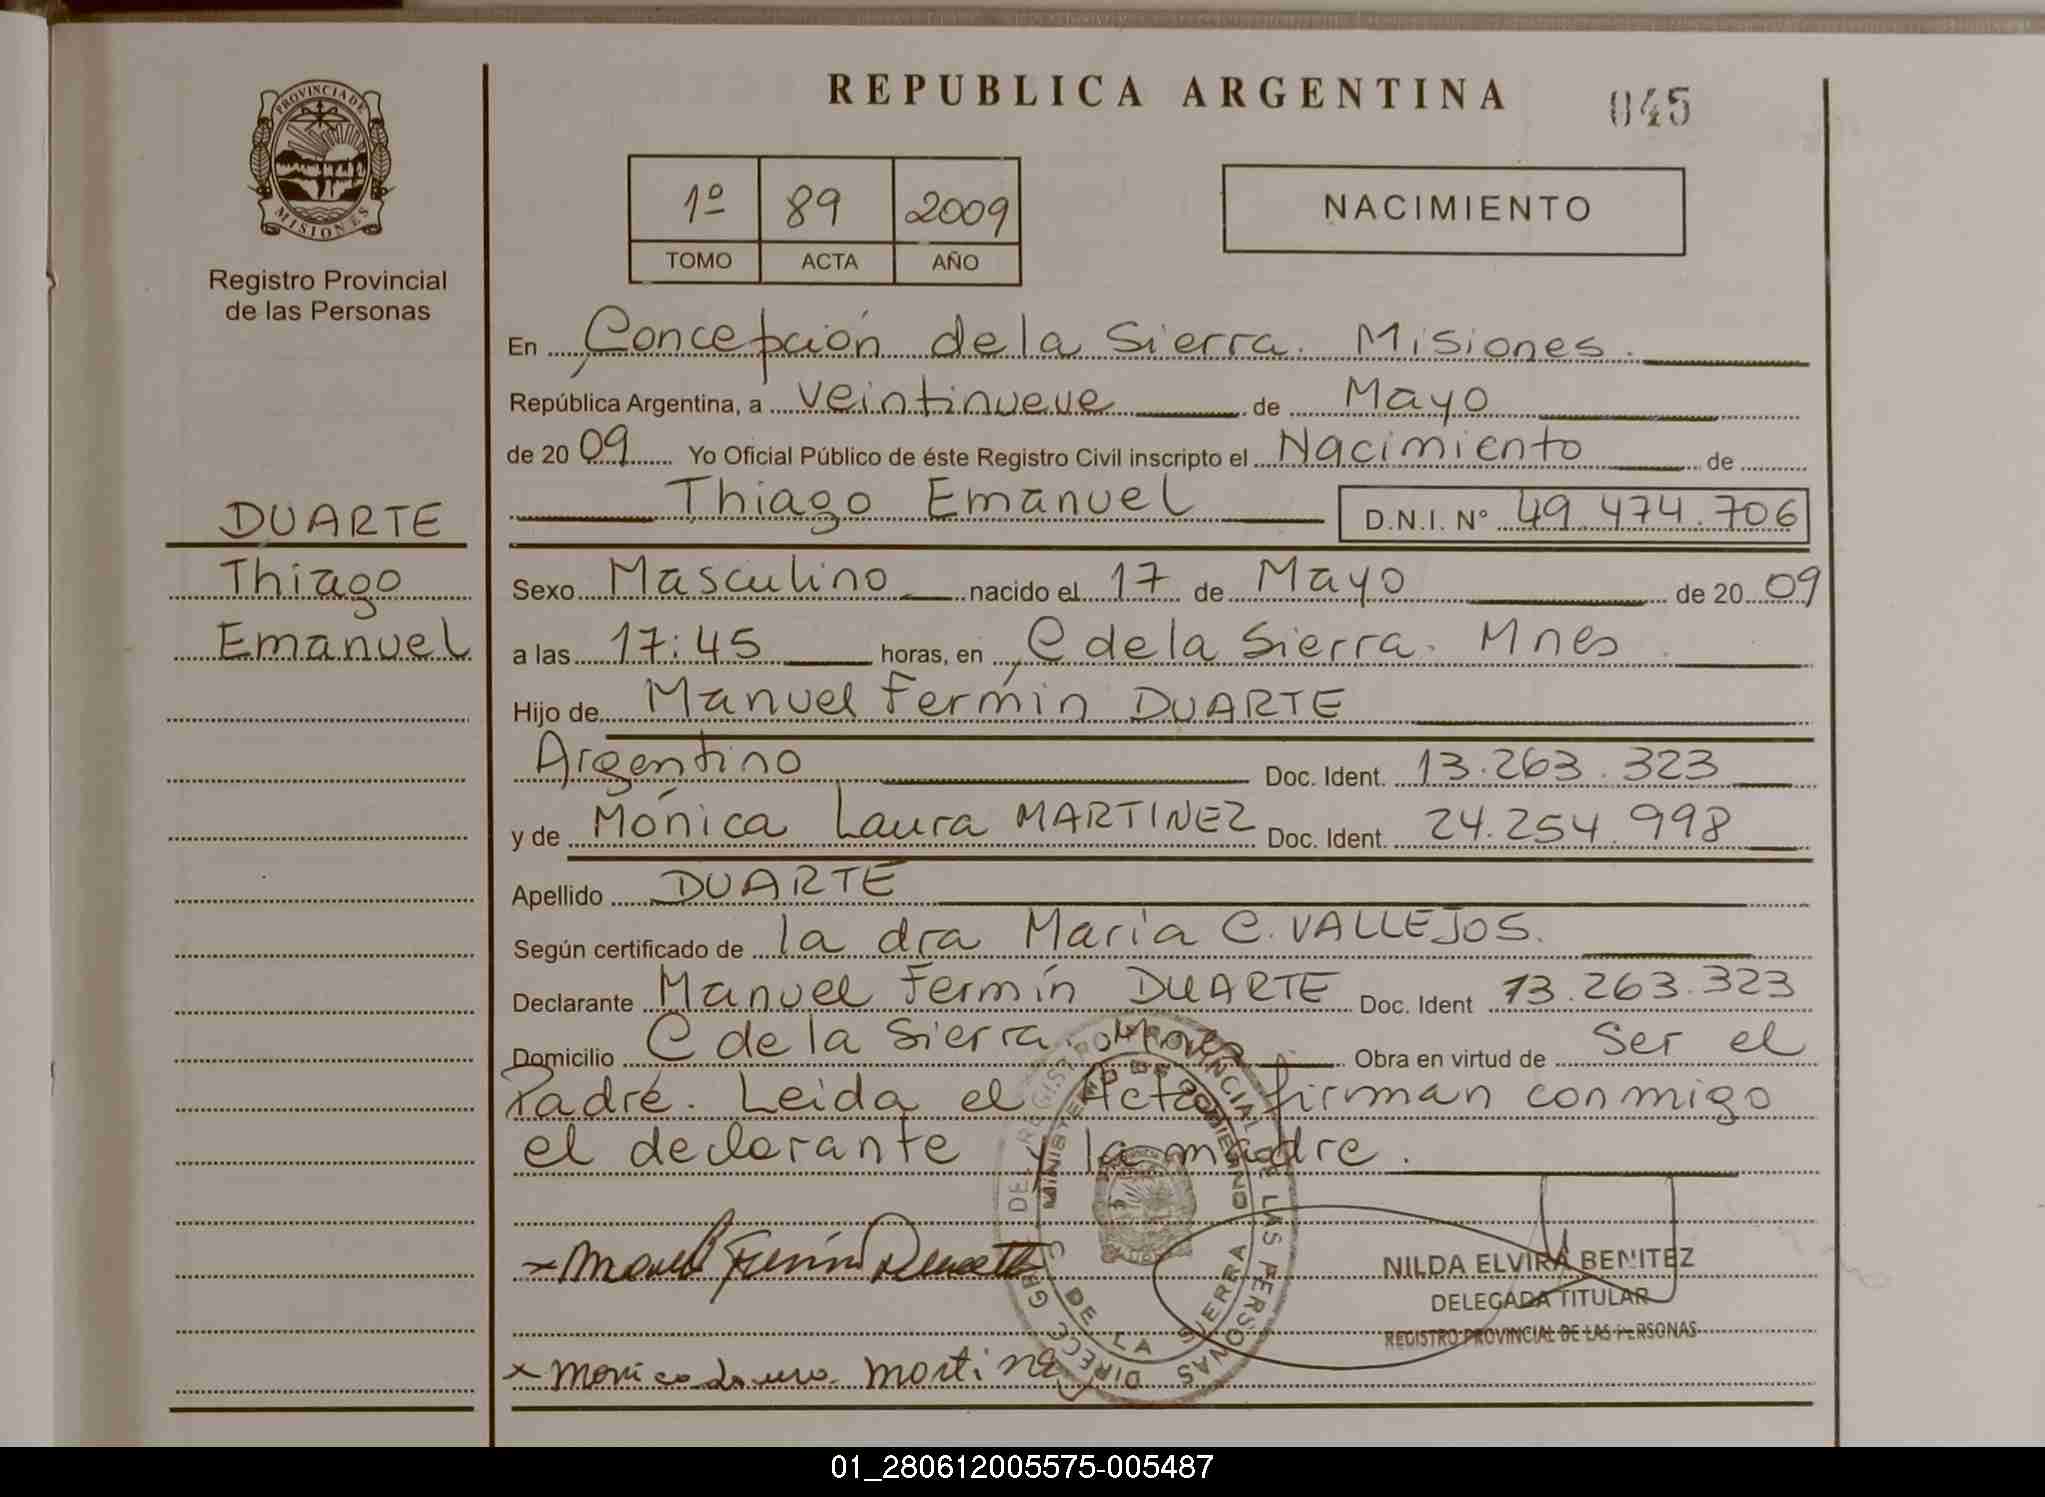 REPUBLICA ARGENTINA
045
PROVINCIA DE
MISIONES
Registro Provincial
de las Personas
1º 89 2009
TOMO ACTA AÑO
NACIMIENTO
En Concepción de la Sierra. Misiones.
República Argentina, a veintinueve de Mayo
de 2009 Yo Oficial Público de éste Registro Civil inscripto el Nacimiento de
Thiago Emanuel D.N.I. Nº 49.474.706
DUARTE
Thiago
Emanuel
Sexo Masculino nacido el 17 de Mayo de 2009
a las 17:45 horas, en C de la Sierra. Mnes
Hijo de Manuel Fermín DUARTE
Argentino Doc. Ident. 13.263.323
y de Mónica Laura MARTINEZ Doc. Ident. 24.254.998
Apellido DUARTE
Según certificado de la dra María C. VALLEJOS.
Declarante Manuel Fermín DUARTE Doc. Ident 13.263.323
Domicilio C de la Sierra. Mnes Obra en virtud de Ser el
Padre. Leida el Acta firman conmigo
el declarante y la madre.
Manuel Fermín
NILDA ELVIRA BENITEZ
DELEGADA TITULAR
REGISTRO PROVINCIAL DE LAS PERSONAS
MINISTERIO DE GOBIERNO
C. DE LA SIERRA
monica Laura martinez
01_280612005575-005487